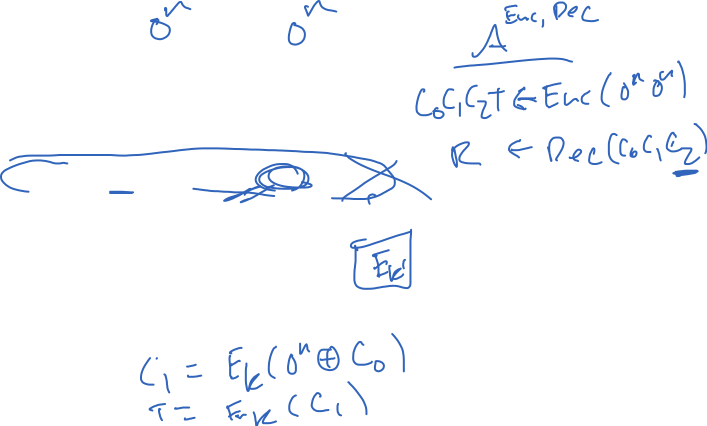 0ⁿ 0ⁿ
A^{Enc, Dec}
C₀C₁C₂T ← Enc(0ⁿ 0ⁿ)
R ← Dec(C₀C₁C₂)
E_{K'}
C₁ = E_K(0ⁿ ⊕ C₀)
T = E_K(C₁)